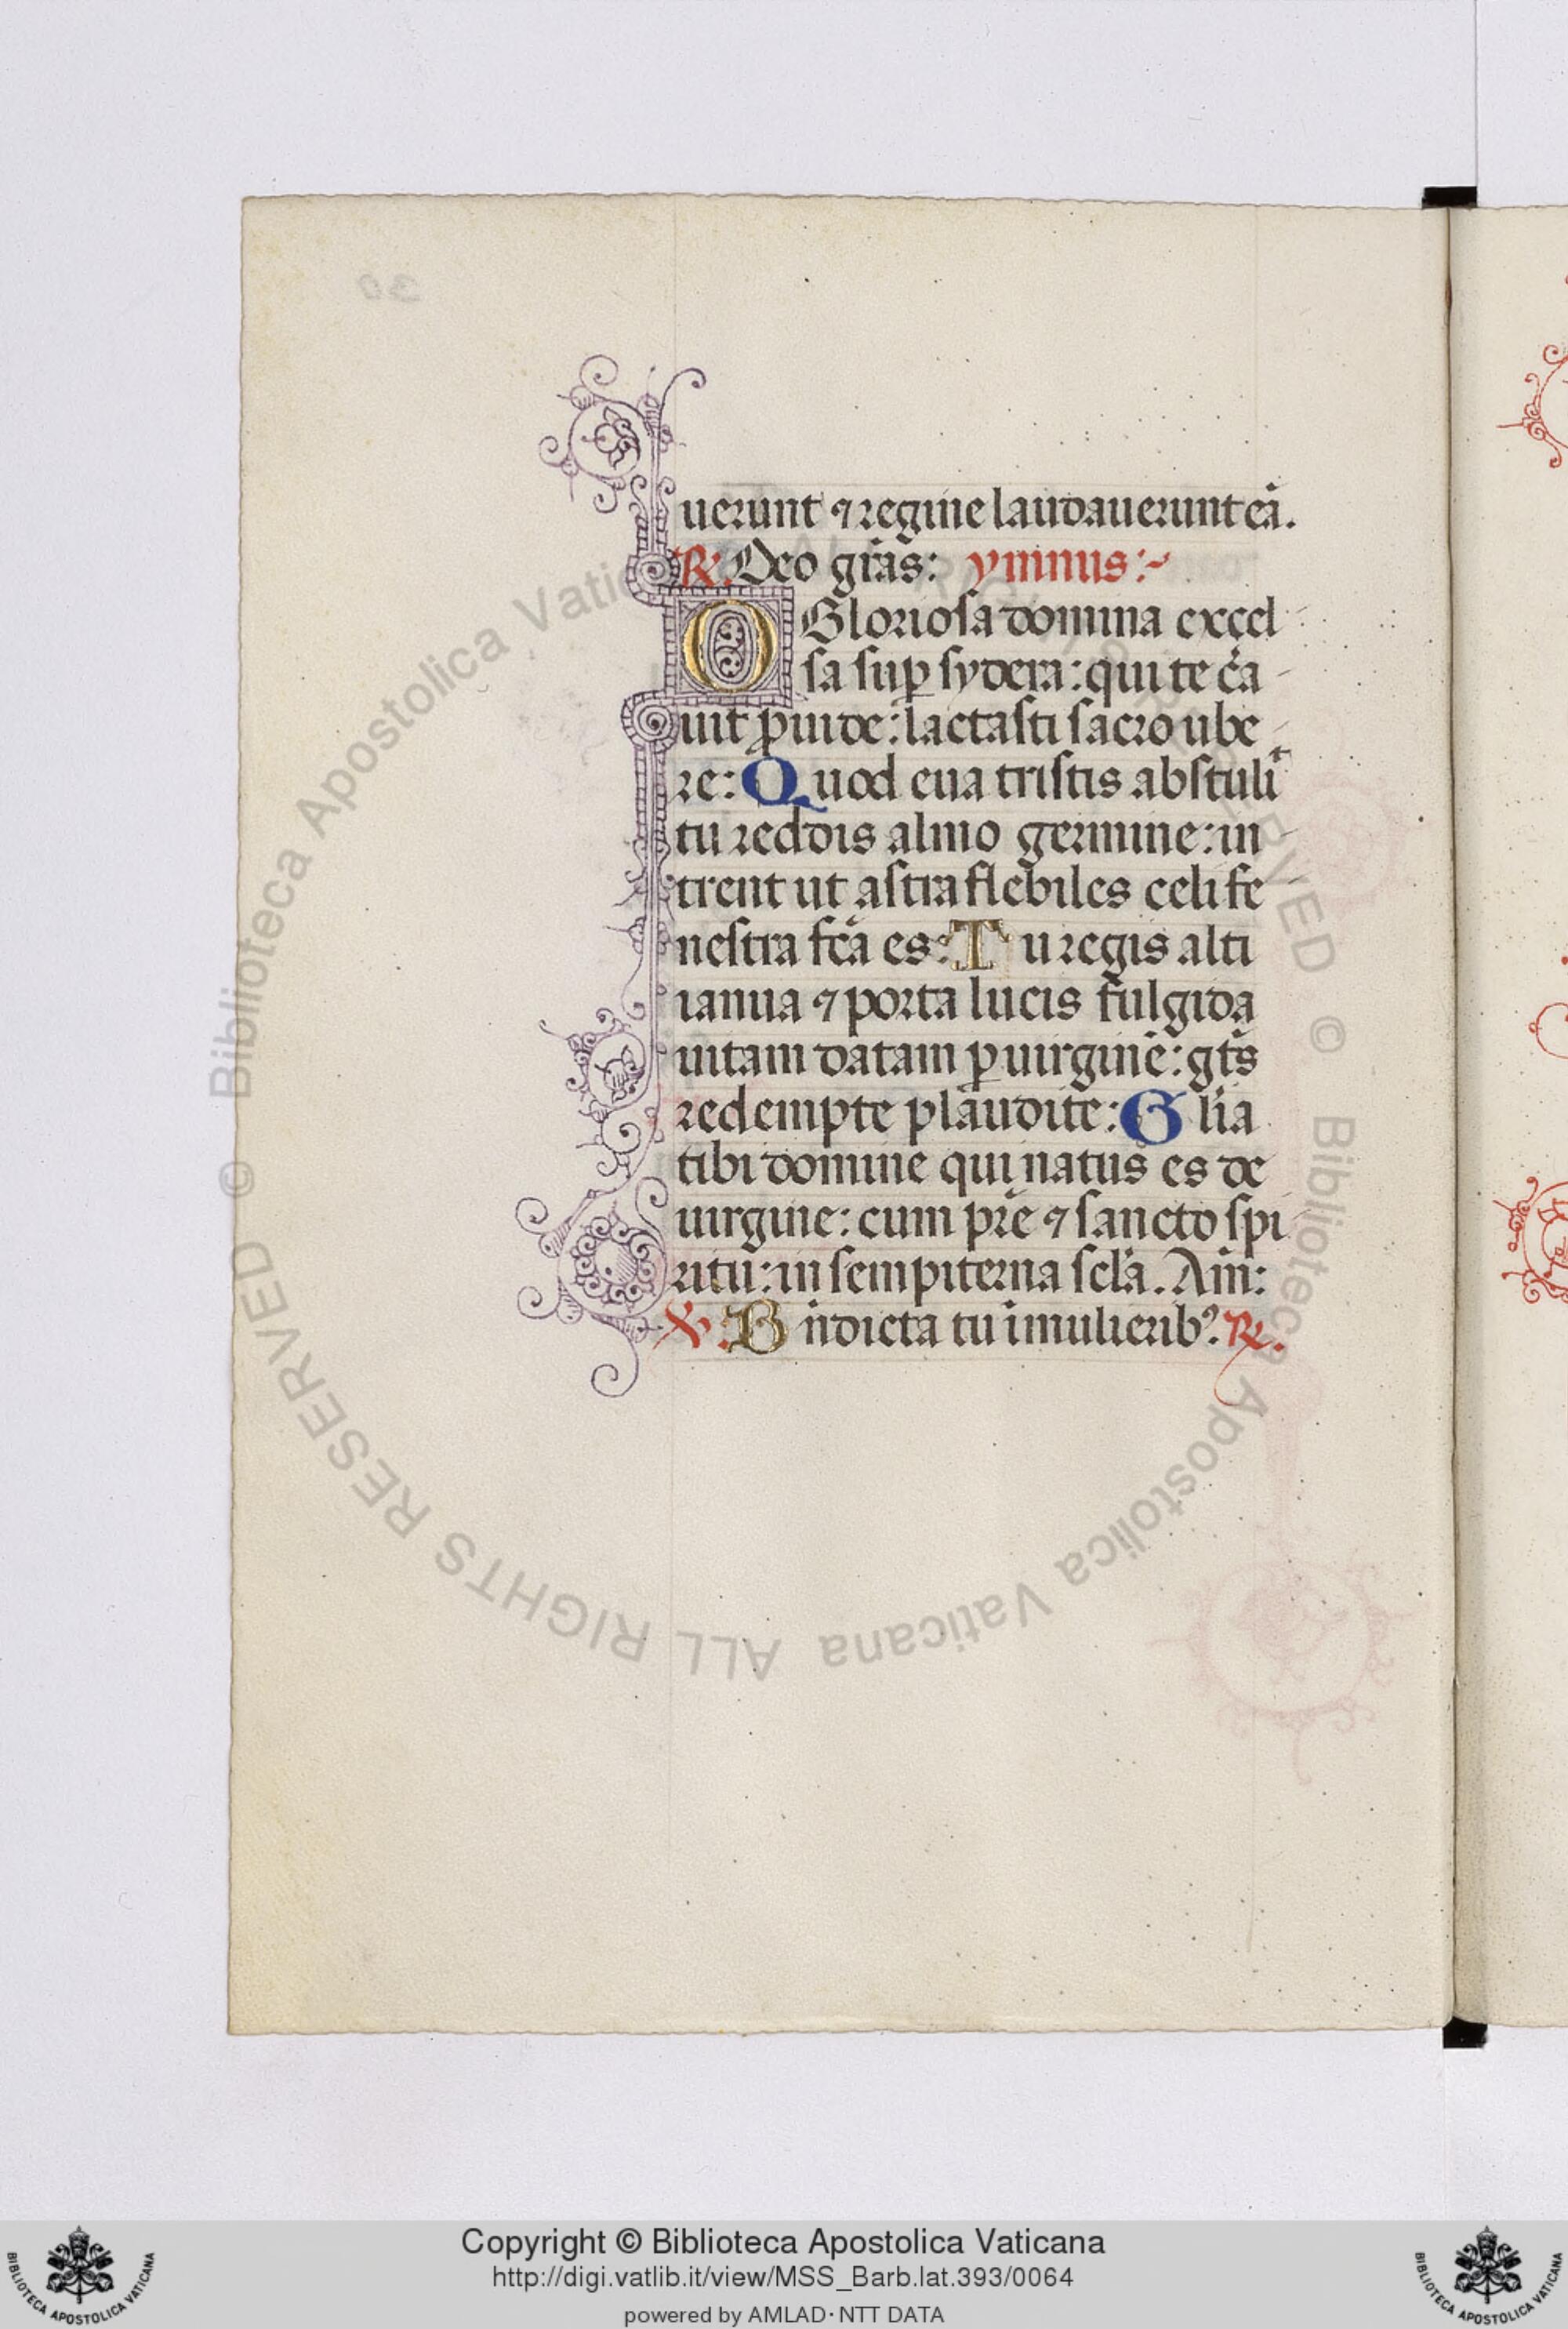 uerunt ⁊ regine laudauerunt eā.
℟. Deo grās: ymnus:~
O Gloriosa domina excel
sa suꝑ sydera: qui te c̄a
uit ꝓuide: lactasti sacro ube
re: Quod eua tristis abstulit
tu reddis almo germine: in
trent ut astra flebiles celi fe
nestra fcā es: Tu regis alti
ianua ⁊ porta lucis fulgida
uitam datam ꝑ uirginē: gt̄s
redempte plaudite: Gl̄ia
tibi domine qui natus es de
uirgine: cum pr̄e ⁊ sancto spi
ritu: in sempiterna scl̄a. Am̄:
℣. Bn̄dicta tu ī mulierib⁹. ℟.
© Biblioteca Apostolica Vaticana ALL RIGHTS RESERVED © Biblioteca Apostolica Vaticana ALL RIGHTS RESERVED
Copyright © Biblioteca Apostolica Vaticana
http://digi.vatlib.it/view/MSS_Barb.lat.393/0064
powered by AMLAD·NTT DATA
BIBLIOTECA APOSTOLICA VATICANA
BIBLIOTECA APOSTOLICA VATICANA